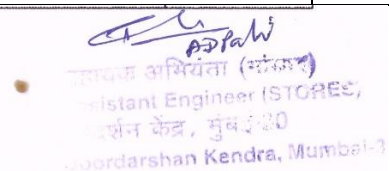 सहायक अभियंता (भांडार)
Assistant Engineer (STORES)
दर्शन केंद्र, मुंबई-30
Doordarshan Kendra, Mumbai-3